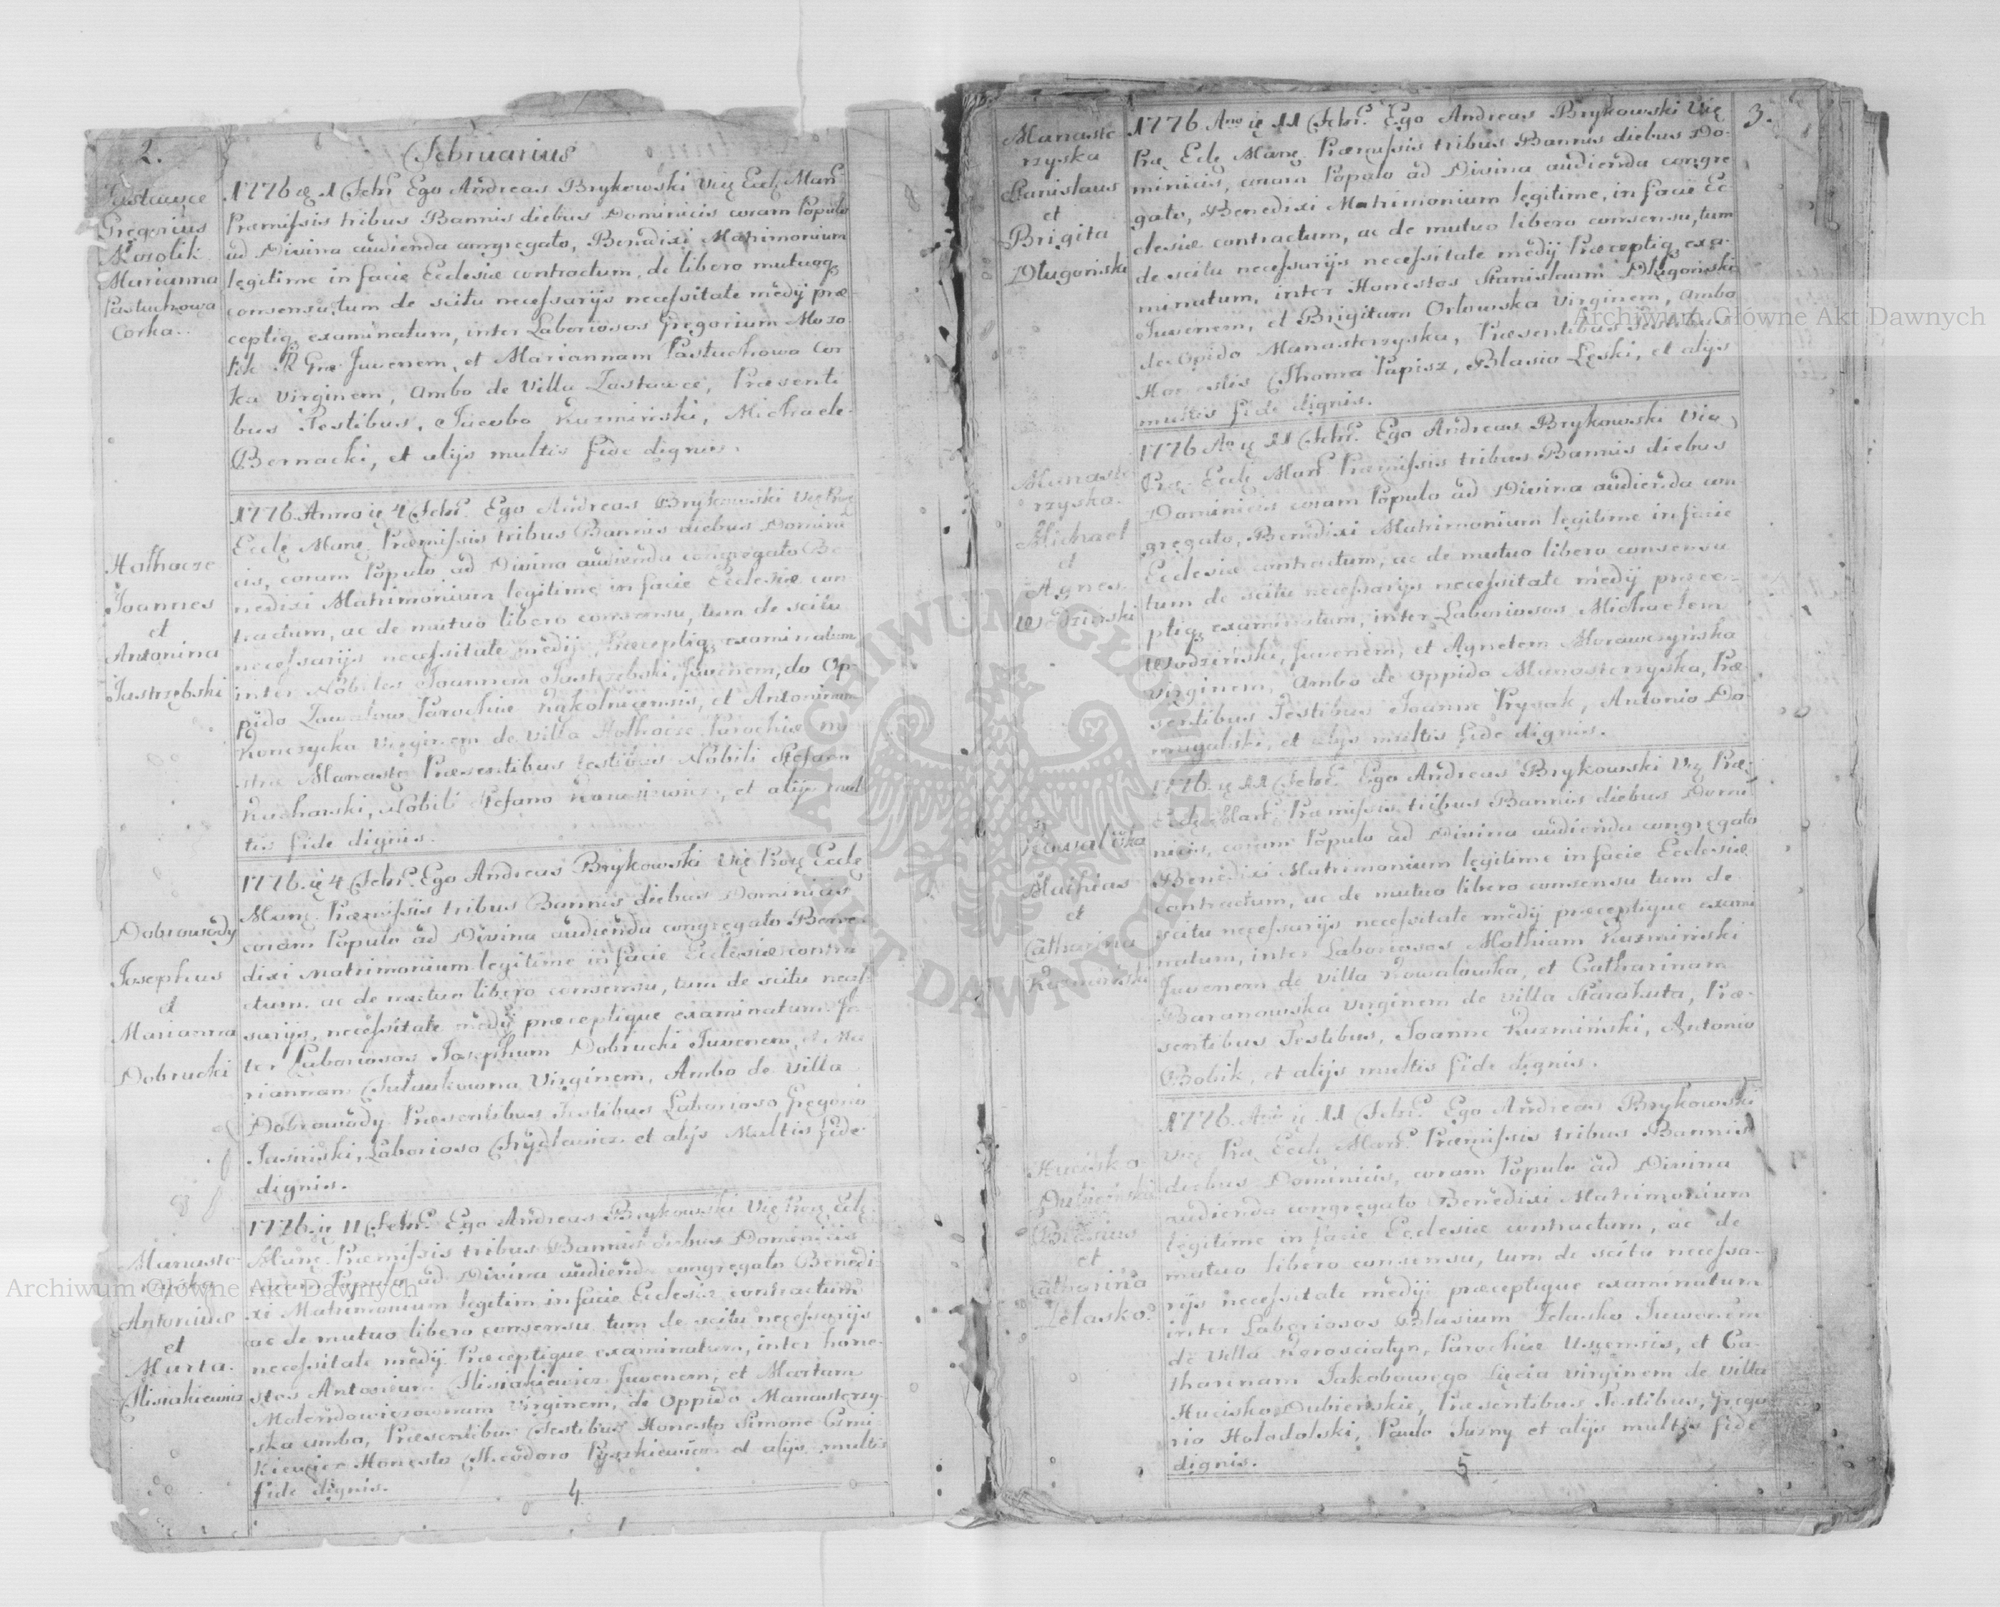 2.
Februarius
Zastawce
Gregorius
Mozolik
Marianna
Pastuchowa
Corka.
1776 ię 1 Febr. Ego Andreas Brykowski Vic Eccl Man
Præmissis tribus Bannis diebus Dominicis coram Populo
ad Divina audienda congregato, Benedixi Matrimonium
legitime in facie Ecclesiæ contractum, de libero mutuoq
consensu, tum de scitu necessarijs necessitate medij præ
ceptiq examinatum, inter Laboriosos Gregorium Mozo
lik Juvenem, et Mariannam Pastuchowa Cor
ka Virginem, Ambo de Villa Zastawce, Præsenti
bus Testibus, Jacobo Kuzminski, Michaele
Bernacki, et alijs multis fide dignis.
Hołhocze
Joannes
et
Antonina
Jastrzębski
1776. Anno ię 4 Febr. Ego Andreas Brykowski Vic
Eccle Manę Præmissis tribus Bannis diebus Domini
cis, coram Populo ad Divina audienda congregato Be
nedixi Matrimonium legitime in facie Ecclesiæ con
tractum, ac de mutuo libero consensu, tum de scitu
necessarijs necessitate medij, Præceptiq examinatum
inter Nobiles Joannem Jastrzębski, Juvenem, de Op
pido Zawałow Parochiæ, et Antoninam
Virginem de Villa Hołhocze Parochiæ no
stræ Manastę Præsentibus testibus Nobili Stefano
Kucharski, Nobili Stefano, et alijs mul
tis fide dignis.
Dobrowody
Josephus
et
Marianna
Dobrucki
1776. ię 4 Febr. Ego Andreas Brykowski Vic Eccle
Manę. Præmissis tribus Bannis diebus Dominicis
coram Populo ad Divina audienda congregato Bene
dixi Matrimonium legitime in facie Ecclesiæ contra
ctum. ac de mutuo libero consensu, tum de scitu neces
sarijs, necessitate medij præceptique examinatum In
ter Laboriosos Josephum Dobrucki Juvenem, et Ma
riannam Virginem, Ambo de Villa
Dobrowody Præsentibus Testibus Laborioso Gregorio
Jasinski, Laborioso et alijs Multis fide
dignis.
Manaste
rzyska
Antonius
et
Marta
1776. ię 11 Febr. Ego Andreas Brykowski Vic Eclę
Manę. Præmissis tribus Bannis diebus Dominicis
coram Populo ad Divina audienda congregato Benedi
xi Matrimonium legitim in facie Ecclesiæ contractum
ac de mutuo libero consensu tum de scitu necessarijs
necessitate medij Præceptique examinatum, inter hone
stos Antonium Juvenem, et Martam
Virginem, de Oppido Manasterzy
ska ambo, Præsentibus Testibus Honesto Simone
Honesto Theodoro Pyszkiewicz et alijs multis
fide dignis.
4
3.
Manaste
rzyska
Stanislaus
et
Brigita
Długoński
1776. Ano ię 11 Febr. Ego Andreas Brykowski Vic
Præ Eclę Manę Præmissis tribus Bannis diebus Do-
minicis, coram Populo ad Divina audienda congre
gato, Benedixi Matrimonium legitime, in facie Ec
clesiæ contractum, ac de mutuo libero consensu, tum
de scitu necessarijs necessitate medij Præceptiq, exa-
minatum, inter Honestos Stanislaum Długoński
Juvenem, et Brigitam Orłowska Virginem, Ambo
de Opido Manasterzyska, Præsentibus Testibus
Honestis Thoma Papisz, Blasio Łęski, et alijs
multis fide dignis.
Manaste
rzyska.
Michael
et
Agnes
Wodziński
1776 Ao ię 11 Febr. Ego Andreas Brykowski Vic
Præ Eclę Manę Præmissis tribus Bannis diebus
Dominicis coram Populo ad Divina audienda con
gregato, Benedixi Matrimonium legitime in facie
Ecclesiæ contractum, ac de mutuo libero consensu
tum de scitu necessarijs necessitate medij præce-
ptiq examinatum, inter Laboriosos Michaelem
Wodziński, Juvenem, et Agnetem Morawczyńska
Virginem, Ambo de Oppido Manasterzyska, Præ
sentibus Testibus Joanne Prysak, Antonio Do
mugalski, et alijs multis fide dignis.
Kowalówka
Mathias
et
Catharina
Kuzmiński
1776. ię 11 Febr. Ego Andreas Brykowski Vic Præ
Eclę Manę Præmissis tribus Bannis diebus Domi
nicis, coram Populo ad Divina audienda congregato
Benedixi Matrimonium legitime in facie Ecclesiæ
contractum, ac de mutuo libero consensu tum de
scitu necessarijs necessitate medij præceptique exami
natum, inter Laboriosos Mathiam Kuzmiński
Juvenem de Villa Kowalówka, et Catharinam
Baranowska Virginem de Villa Starahuta, Præ-
sentibus Testibus, Joanne Kuzmiński, Antonio
Bobik, et alijs multis fide dignis.
Hucisko
Dubieński
Blasius
et
Catharina
Zelasko
1776. Ano ię 11 Febr. Ego Andreas Brykowski
Vic Præ Eclę Manę Præmissis tribus Bannis
diebus Dominicis, coram Populo ad Divina
audienda congregato Benedixi Matrimonium
legitime in facie Ecclesiæ contractum, ac de
mutuo libero consensu, tum de scitu necessa-
rijs necessitate medij præceptique examinatum
inter Laboriosos Blasium Zelasko Juvenem
de Villa Korosciatyn, Parochiæ, et Ca-
tharinam Jakobowego Zięcia Virginem de Villa
Hucisko Dubienskie, Præsentibus Testibus, Grego
rio Hoładolski, Paulo Juzny et alijs multis fide
dignis.
5
Archiwum Główne Akt Dawnych
Archiwum Główne Akt Dawnych
ARCHIWUM GŁÓWNE AKT DAWNYCH